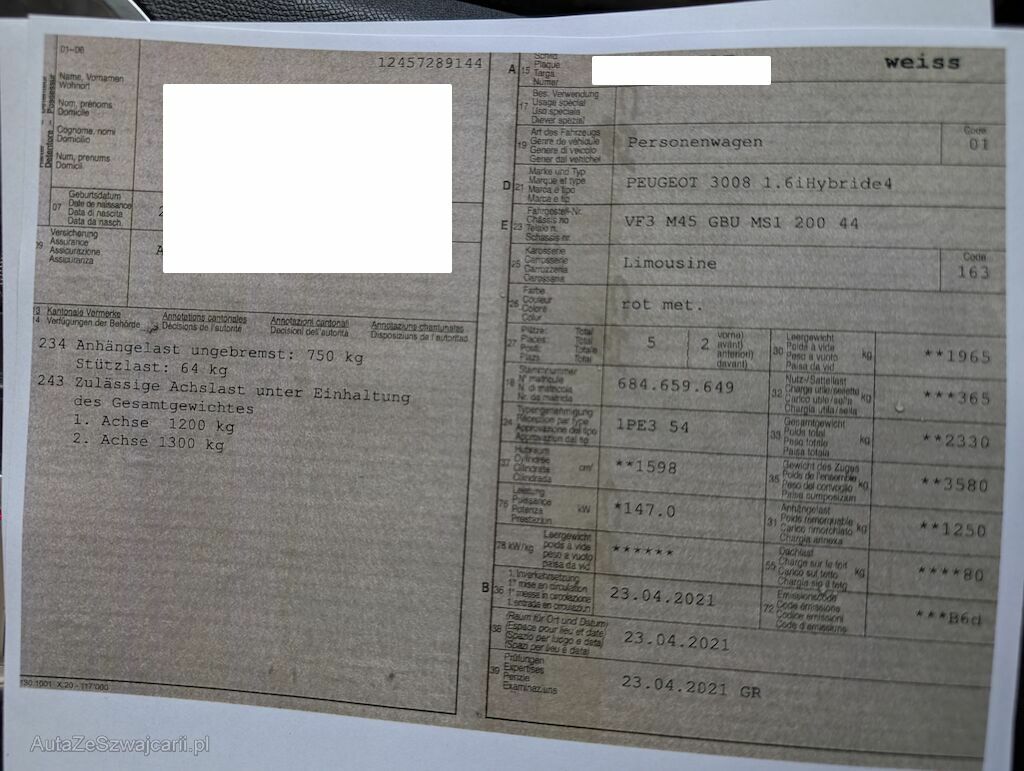 01-06
12457289144
Name, Vornamen
Wohnort
Nom, prénoms
Domicile
Cognome, nomi
Domicilio
Num, prenums
Domicil
07
Geburtsdatum
Date de naissance
Data di nascita
Data da nasch.
09
Versicherung
Assurance
Assicurazione
Assicuranza
Kantonale Vermerke
Verfügungen der Behörde
Annotations cantonales
Décisions de l'autorité
Annotazioni cantonali
Decisioni dell'autorità
Annotaziuns chantunalas
Disposiziuns da l'autoritad
234 Anhängelast ungebremst: 750 kg
Stützlast: 64 kg
243 Zulässige Achslast unter Einhaltung
des Gesamtgewichtes
1. Achse 1200 kg
2. Achse 1300 kg
130.1001 X.20 - 117'000
A 15
Schild
Plaque
Targa
Numer
weiss
17
Bes. Verwendung
Usage spécial
Uso speciale
Diever spezial
19
Art des Fahrzeugs
Genre de véhicule
Genere di veicolo
Gener dal vehichel
Personenwagen
Code
01
D 21
Marke und Typ
Marque et type
Marca e tipo
Marca e tip
PEUGEOT 3008 1.6iHybride4
E 23
Fahrgestell-Nr.
Châssis no
Telaio n.
Schassis nr.
VF3 M45 GBU MS1 200 44
25
Karosserie
Carrosserie
Carrozzeria
Carossaria
Limousine
Code
163
26
Farbe
Couleur
Colore
Color
rot met.
27
Plätze: Total
Places: Total
Posti: Totale
Plazs: Total
5
2
vorne)
avant)
anteriori)
davant)
30
Leergewicht
Poids à vide
Peso a vuoto
Paisa da vid
kg
**1965
18
Stammnummer
N° matricule
N. di matricola
Nr. da matricla
684.659.649
32
Nutz-/Sattellast
Charge utile/sellette
Carico utile/sella
Chargia utila/sella
kg
***365
24
Typengenehmigung
Réception par type
Approvazione del tipo
Approvaziun dal tip
1PE3 54
33
Gesamtgewicht
Poids total
Peso totale
Paisa totala
kg
**2330
37
Hubraum
Cylindrée
Cilindrata
Cilindrada
cm³
**1598
35
Gewicht des Zuges
Poids de l'ensemble
Peso del convoglio
Paisa cumposiziun
kg
**3580
76
Leistung
Puissance
Potenza
Prestaziun
kW
*147.0
31
Anhängelast
Poids remorquable
Carico rimorchiato
Chargia annexa
kg
**1250
78 kW/kg
Leergewicht
poids à vide
peso a vuoto
paisa da vid
******
55
Dachlast
Charge sur le toit
Carico sul tetto
Chargia sin il tetg
kg
****80
B 36
1. Inverkehrsetzung
1re mise en circulation
1a messa in circolazione
1. entrada en circulaziun
23.04.2021
72
Emissionscode
Code émissions
Codice emissioni
Code d'emissiuns
***B6d
38
(Raum für Ort und Datum)
(Espace pour lieu et date)
(Spazio per luogo e data)
(Spazi per lieu e data)
23.04.2021
39
Prüfungen
Expertises
Perizie
Examinaziuns
23.04.2021 GR
AutaZeSzwajcarii.pl